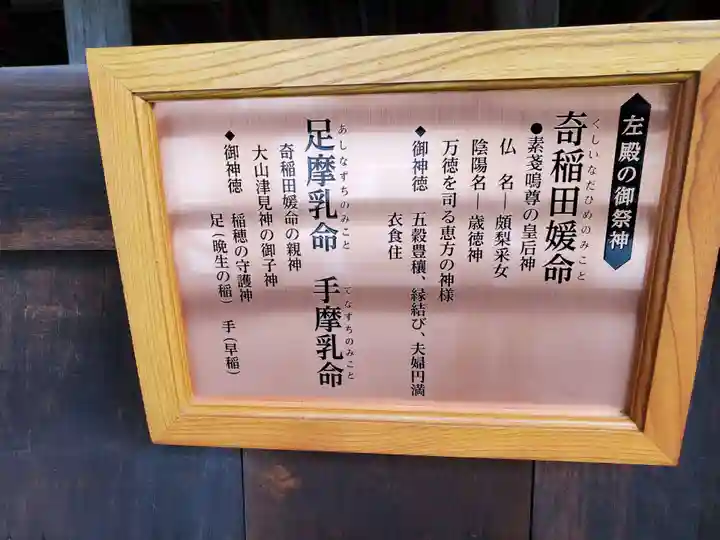 左殿の御祭神
くしいなだひめのみこと
奇稲田媛命
●素戔嗚尊の皇后神
仏 名―頗梨采女
陰陽名―歳徳神
万徳を司る恵方の神様
◆御神徳 五穀豊穣、縁結び、夫婦円満
衣食住
あしなずちのみこと てなずちのみこと
足摩乳命 手摩乳命
奇稲田媛命の親神
大山津見神の御子神
◆御神徳 稲穂の守護神
足(晩生の稲) 手(早稲)